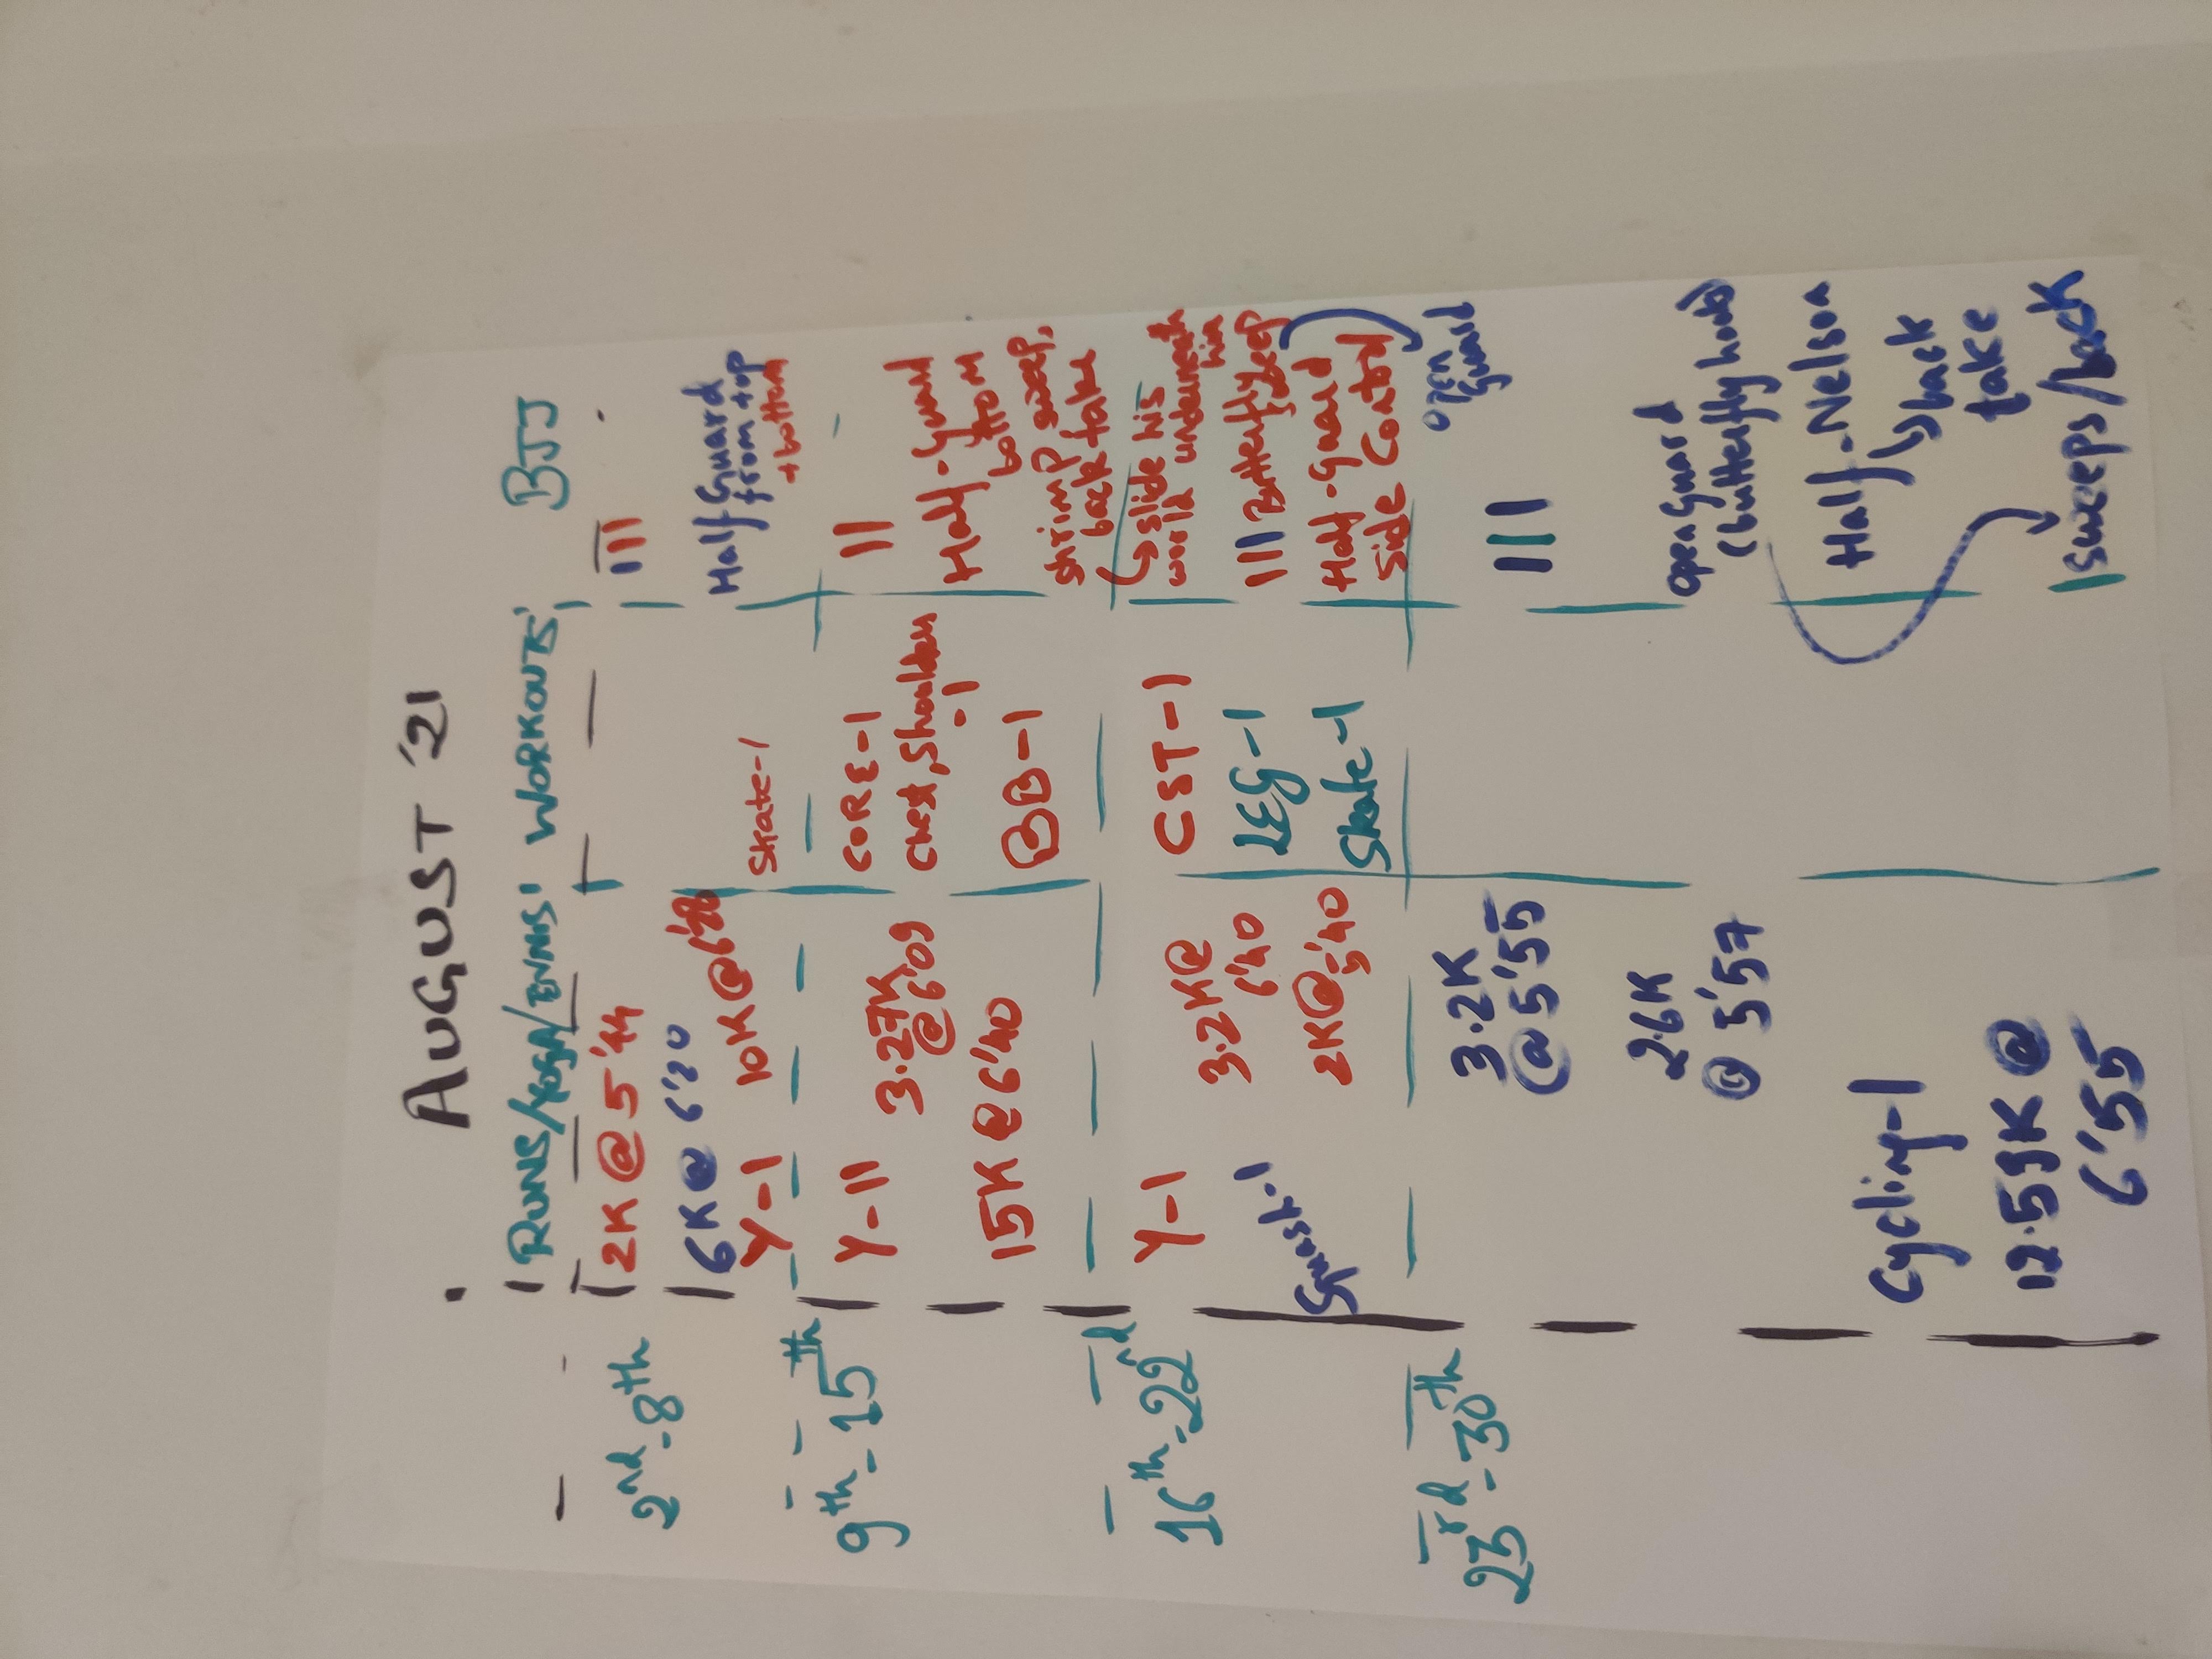 AUGUST '21
RUNS/YOGA/TENNIS WORKOUTS BJJ
2nd - 8th
2K @ 5'44
6K @ 6'20
Y-1 10K @
Skate-1
III
Half Guard
from top
+ bottom
9th - 15th
Y-11 3.27K
@ 6'09
15K @ 6'40
CORE-1
Chest, Shoulders
-1
BB-1
II
Half-Guard
bottom
shrimp sweep,
back take
16th - 22nd
Y-1
3.2K@
6'40
Squash-1
2K@5'40
CST-1
LEG-1
Skate-1
Slide his
world underneath
him
III Butterfly
Half-Guard
Side Control
open
guard
23rd - 30th
3.2K
@ 5'55
2.6K
@ 5'57
Cycling-1
12.53K @
6'55
III
open Guard
(butterfly hooks)
Half-Nelson
back
take
sweeps/back